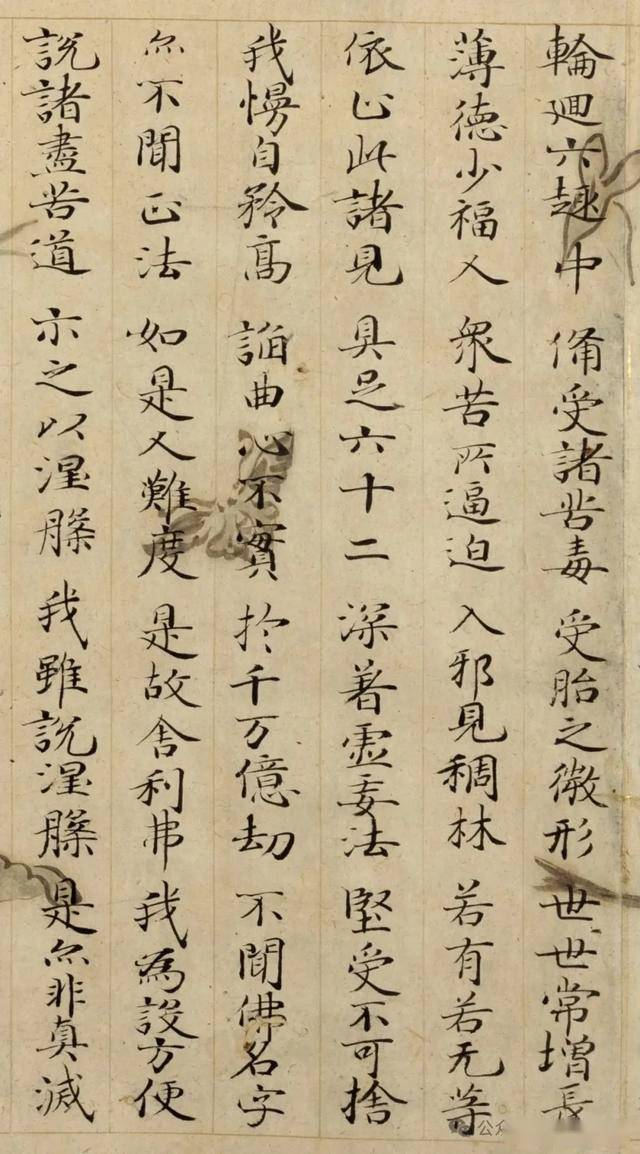 輪迴六趣中 俻受諸苦毒 受胎之微形 世世常增長
薄德少福人 衆苦所逼迫 入邪見稠林 若有若无等
依止此諸見 具足六十二 深著虛妄法 堅受不可捨
我慢自矜高 諂曲心不實 扵千万億劫 不聞佛名字
亦不聞正法 如是人難度 是故舍利弗 我為設方便
説諸盡苦道 示之以涅槃 我雖説涅槃 是亦非真滅
公众